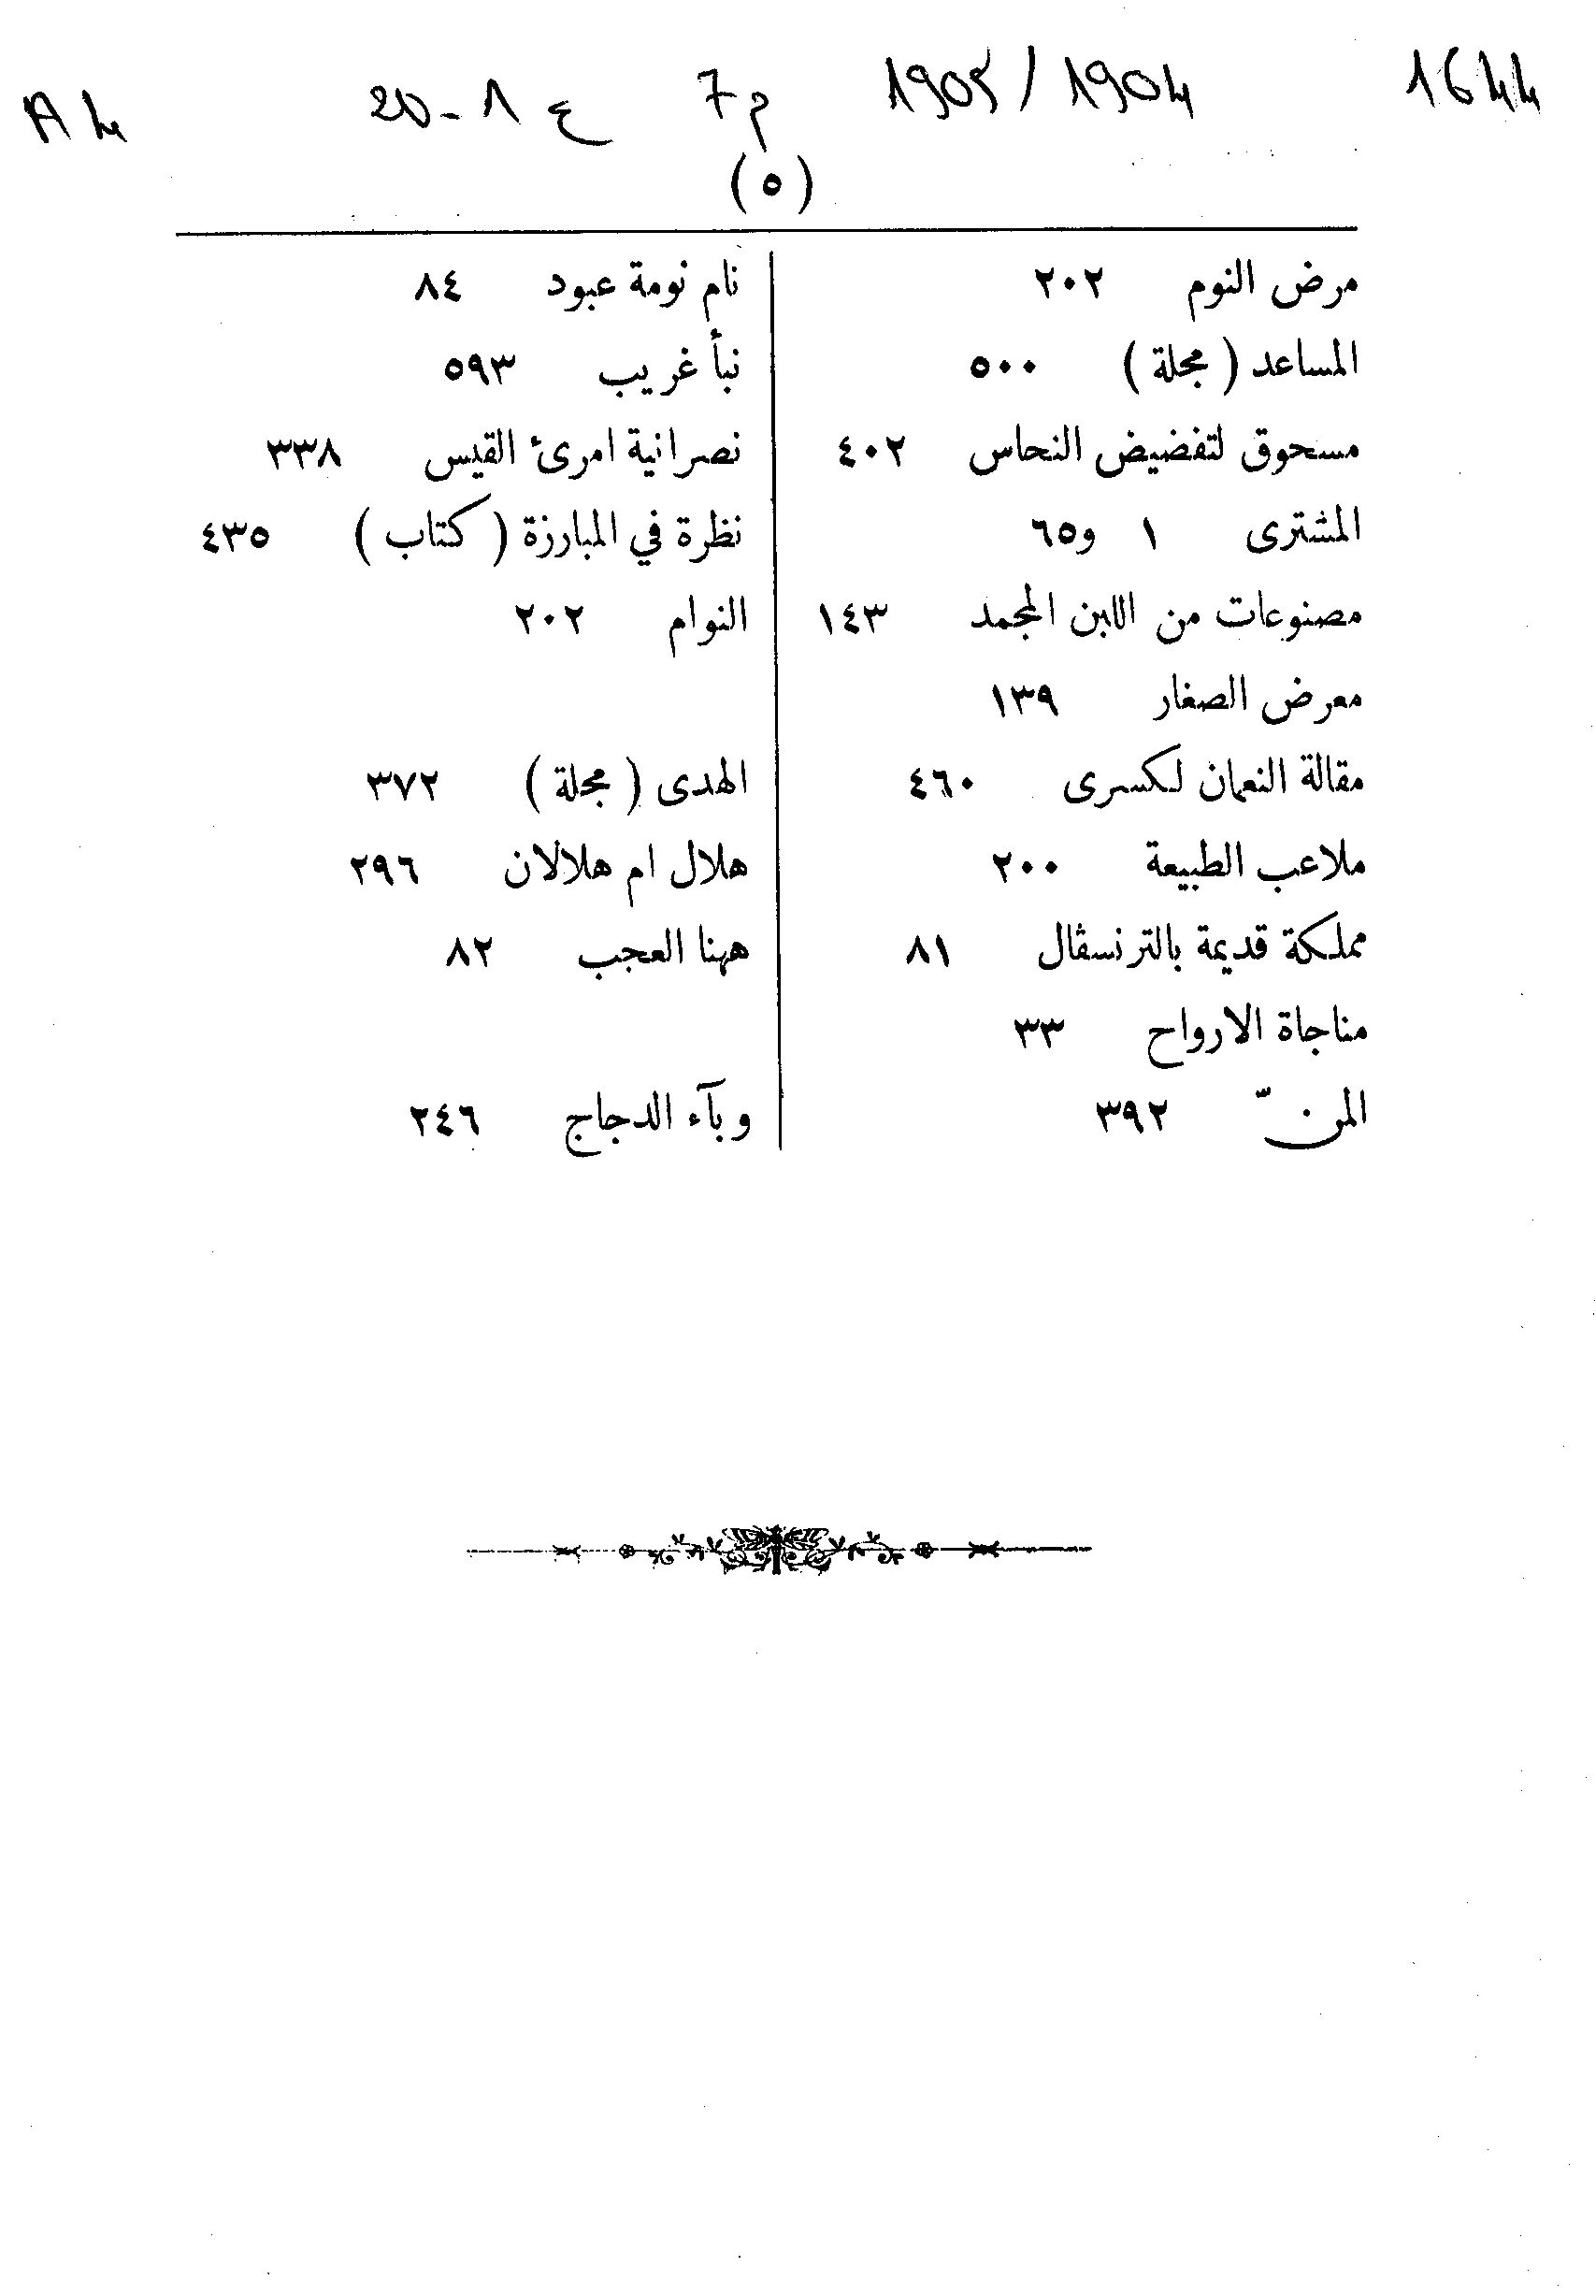 1644 1904 / 1905 م 7 ع 1 - 20 A4
( ٥ )
مرض النوم ٢٠٢
المساعد ( مجلة ) ٥٠٠
مسحوق لتفضيض النحاس ٤٠٢
المشترى ١ و٦٥
مصنوعات من اللبن المجمد ١٤٣
معرض الصغار ١٣٩
مقالة النعمان لكسرى ٤٦٠
ملاعب الطبيعة ٢٠٠
مملكة قديمة بالترنسڤال ٨١
مناجاة الارواح ٣٣
المنّ ٣٩٢
نام نومة عبود ٨٤
نبأ غريب ٥٩٣
نصرانية امرئ القيس ٣٣٨
نظرة في المبارزة ( كتاب ) ٤٣٥
النوام ٢٠٢
الهدى ( مجلة ) ٣٧٢
هلال ام هلالان ٢٩٦
ههنا العجب ٨٢
وبآء الدجاج ٢٤٦